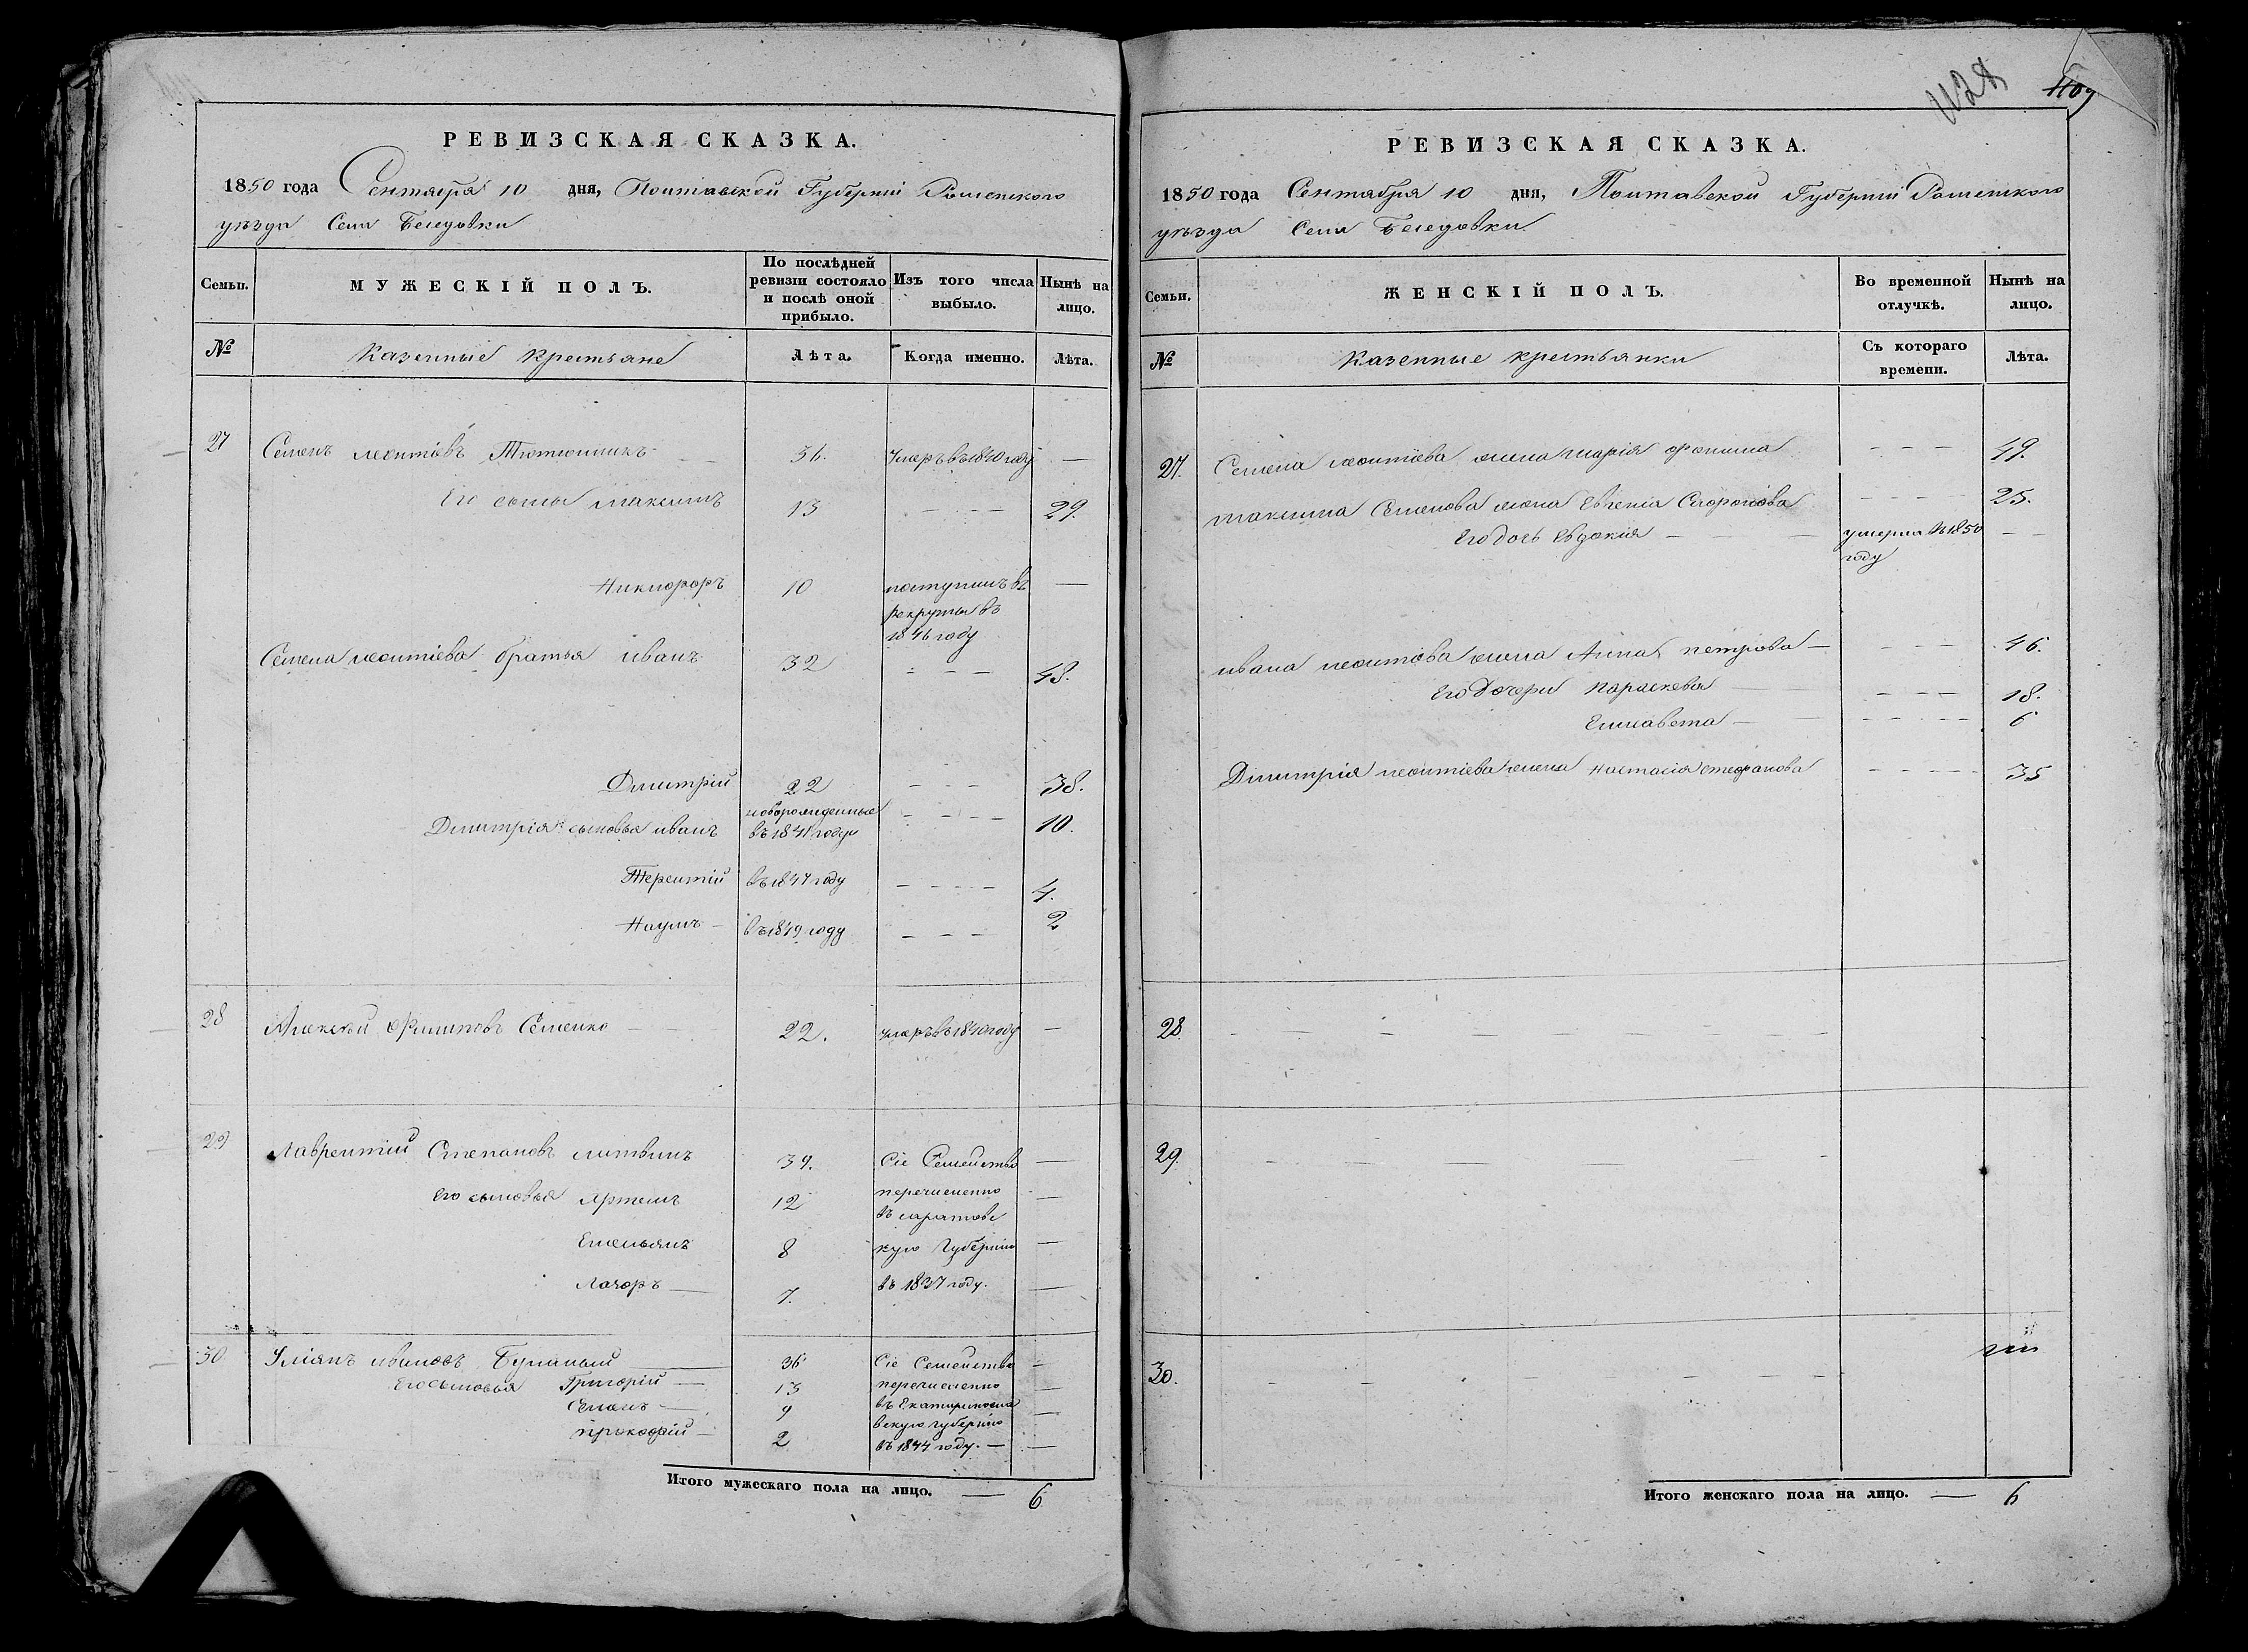 РЕВИЗСКАЯ СКАЗКА.
1850 года Сентября 10 дня, Полтавской Губерніи Роменского
уѣзда Села Беседовки
Семьи.
МУЖЕСКІЙ ПОЛЪ.
По послѣдней ревизіи состояло и послѣ оной прибыло.
Изъ того числа выбыло.
Нынѣ на лицо.
№ Казенные крестьяне Лѣта. Когда именно. Лѣта.
27 Семенъ леонтіевъ Тютюнникъ 36. умеръ въ 1840 году —
Его сыны максимъ 13 - - - 29.
Никифоръ 10 поступилъ въ —
рекруты въ
1846 году
Семена леонтіева братья иванъ 32 - - - 48.
Дмитрій 22 - - - 38.
новорожденные
Дмитрія сыновья иванъ въ 1841 году - - - - 10.
Терентій въ 1847 году - - - - 4.
Наумъ - въ 1849 году - - - 2
28 Алексѣй Филиповъ Семенко 22. умеръ въ 1840 году —
29 Лаврентій Степановъ литвинъ 39. Сіе Семейство —
Его сыновья Артемъ 12 перечисленно —
въ саратовс
Емельянъ 8 кую Губернію —
Лазоръ — 7. въ 1837 году. —
30 Уліянъ ивановъ 36 Сіе Семейство —
Его сыновья Григорій — 13 перечисленно —
Семенъ — 9 въ Екатеринослав —
вскую губернію
прокофій — 2 въ 1844 году. — —
Итого мужескаго пола на лицо. — 6
1109
РЕВИЗСКАЯ СКАЗКА.
1850 года Сентября 10 дня, Полтавской Губерніи Роменского
уѣзда Села Беседовки
Семьи.
ЖЕНСКІЙ ПОЛЪ.
Во временной отлучкѣ.
Нынѣ на лицо.
№ Казенные крестьянки Съ котораго времени. Лѣта.
27. Семена леонтіева жена марія фомина - - - 49.
максима Семенова жена Евгенія Сафронова - - - 25.
Его дочь Евдокія — умерла въ 1850 — —
году
ивана леонтіева жена Анна петрова — - - - 46.
Его Дочери параскевія - - - 18.
Елисавета — - - - - 6
Дмитрія леонтіева жена настасія стефанова - - - - 35
28. — — — — — — —
29. — — — — — — —
30. - - - - - - -
Итого женскаго пола на лицо. — 6